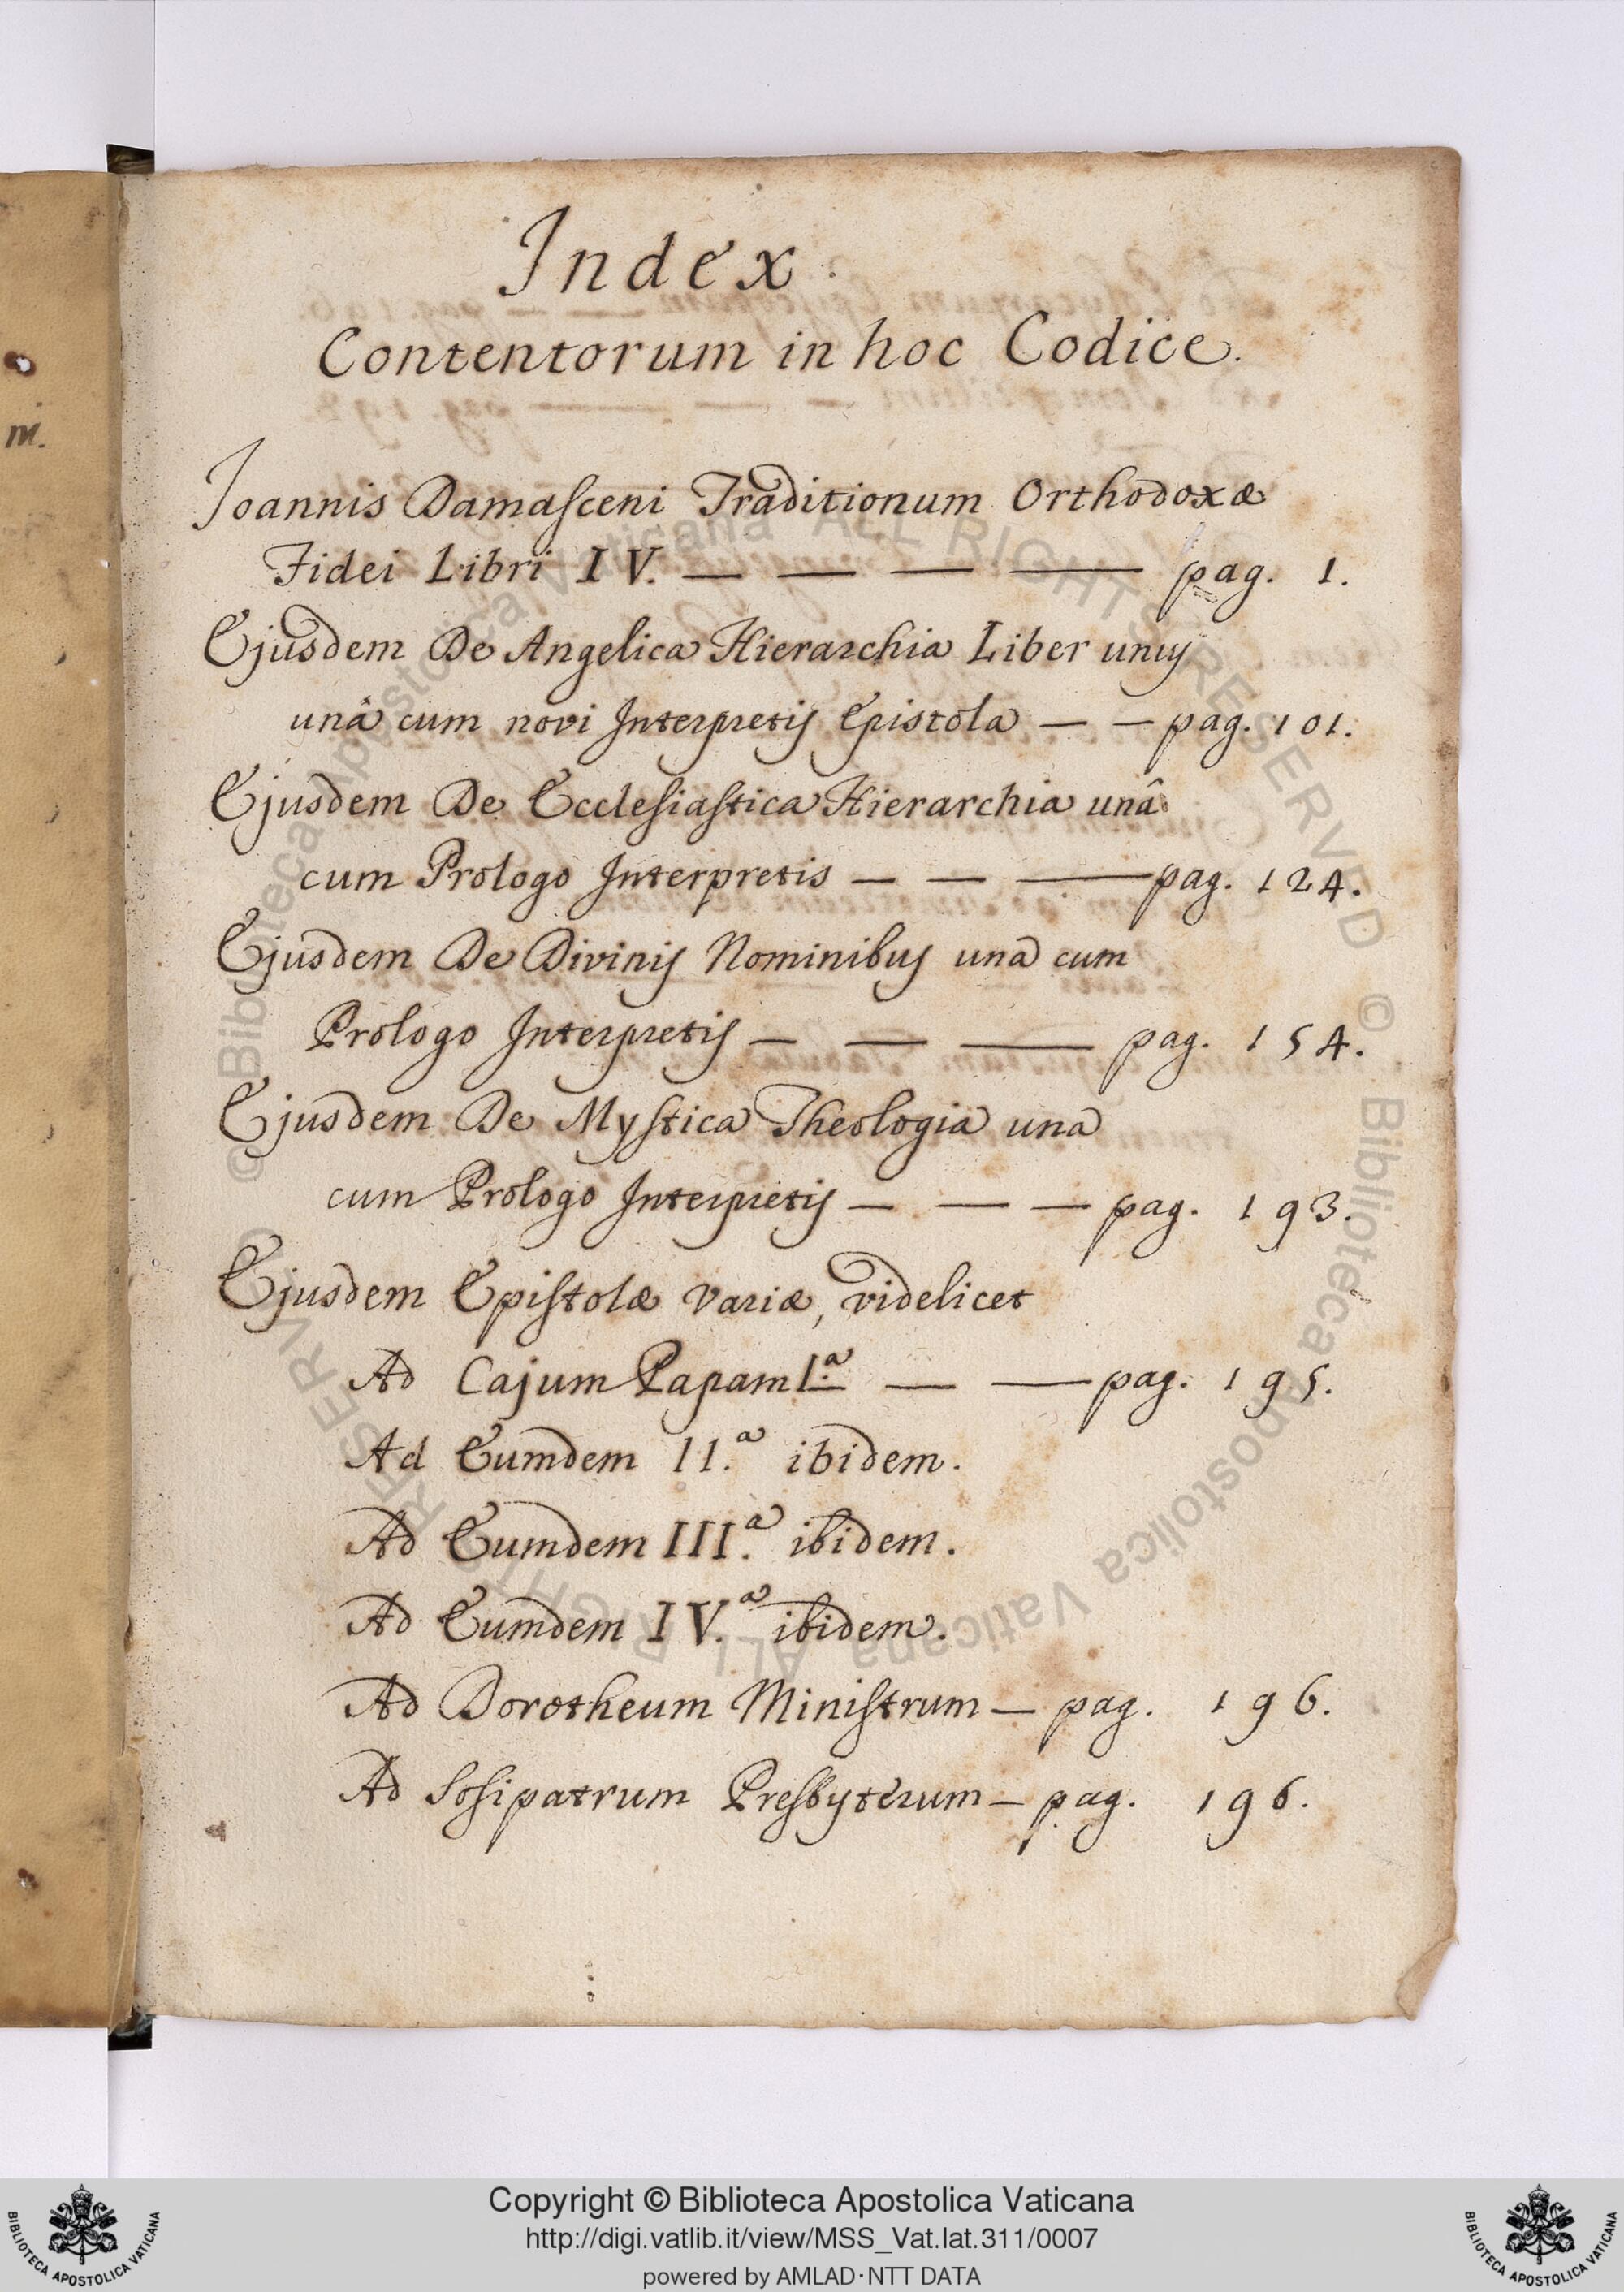 m.
Index
Contentorum in hoc Codice.
Joannis Damasceni Traditionum Orthodoxæ
Fidei Libri IV. — — — — pag. 1.
Ejusdem De Angelica Hierarchia Liber unus
unâ cum novi Interpretis Epistola — — pag. 101.
Ejusdem De Ecclesiastica Hierarchia unâ
cum Prologo Interpretis — — — pag. 124.
Ejusdem De Divinis Nominibus una cum
Prologo Interpretis — — — pag. 154.
Ejusdem De Mystica Theologia una
cum Prologo Interpretis — — — pag. 193.
Ejusdem Epistolæ variæ, videlicet
Ad Cajum Papam I.ª — — pag. 195.
Ad Eumdem II.ª ibidem.
Ad Eumdem III.ª ibidem.
Ad Eumdem IV.ª ibidem.
Ad Dorotheum Ministrum — pag. 196.
Ad Sosipatrum Presbyterum — pag. 196.
© Biblioteca Apostolica Vaticana ALL RIGHTS RESERVED © Biblioteca Apostolica Vaticana ALL RIGHTS RESERVED
Copyright © Biblioteca Apostolica Vaticana
http://digi.vatlib.it/view/MSS_Vat.lat.311/0007
powered by AMLAD·NTT DATA
BIBLIOTECA APOSTOLICA VATICANA
BIBLIOTECA APOSTOLICA VATICANA